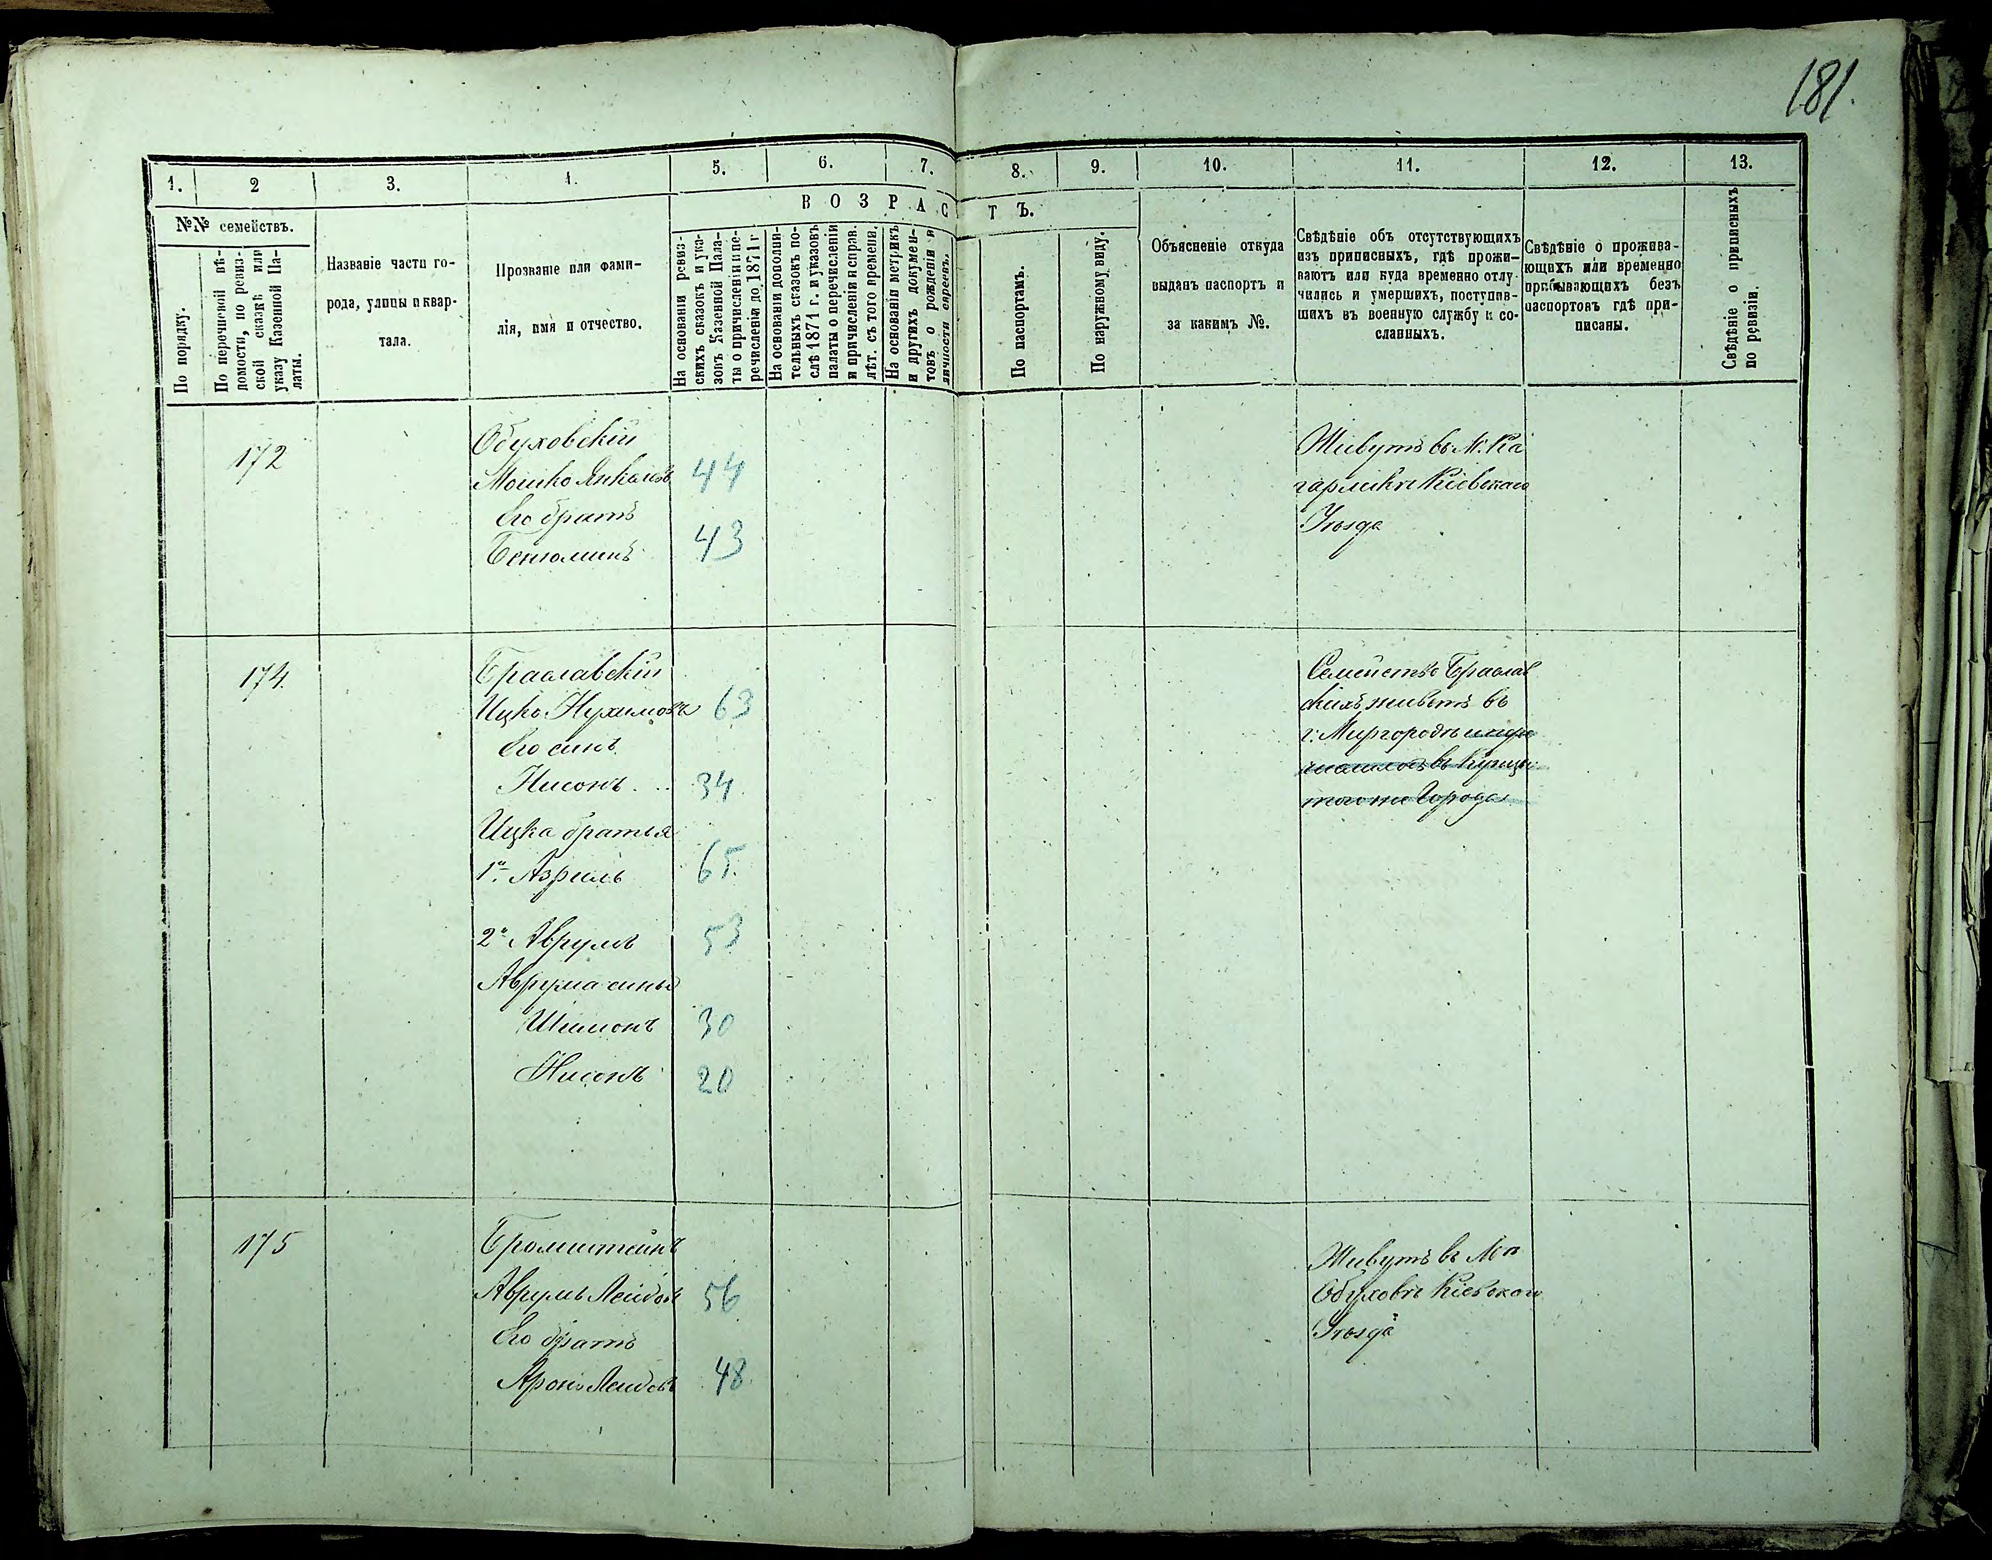 181.
1.
2
3.
4.
5.
6.
7.
8.
9.
10.
11.
12.
13.
№№ семействъ.
ВОЗРАСТЪ.
По порядку.
По перечневой вѣ-
домости, по ревиз-
ской сказкѣ или
указу Казенной Па-
латы.
Названіе части го-
рода, улицы и квар-
тала.
Прозваніе или фами-
лія, имя и отчество.
На основаніи ревиз-
скихъ сказокъ и ука-
зовъ Казенной Пала-
ты о причисленіи и пе-
речисленіи до 1871 г.
На основаніи дополни-
тельныхъ сказокъ по-
слѣ 1871 г. и указовъ
палаты о перечисленіи
и причисленіи и справ.
лѣт. съ того времени.
На основаніи метрикъ
и другихъ докумен-
товъ о рожденіи и
личности евреевъ.
По паспортамъ.
По наружному виду.
Объясненіе откуда
выданъ паспортъ и
за какимъ №.
Свѣдѣніе объ отсутствующихъ
изъ приписныхъ, гдѣ прожи-
ваютъ или куда временно отлу-
чились и умершихъ, поступив-
шихъ въ военную службу и со-
сланныхъ.
Свѣдѣніе о прожива-
ющихъ или временно
прибывающихъ безъ
паспортовъ гдѣ при-
писаны.
Свѣдѣніе о приписныхъ
по ревизіи.
172
Обуховскій
Мошко Янкелевъ 44
Его братъ
Бенюминъ 43
Живутъ въ М. Ка
гарликѣ Кіевскаго
Уѣзда
174.
Браславскій
Ицко Нухимовъ 63
Его сынъ
Нисонъ 34
Ицка братья
1й Азриль 65.
2й Аврумъ 53
Аврума сынья
Шимонъ 30
Нисонъ 20
Семейство Браслав
скихъ живетъ въ
г. Миргородѣ
въ Купцы
того же Города
175
Бромштейнъ
Аврумъ Лейбовъ 56
Его братъ
Аронъ Лейбовъ 48
Живутъ въ
Обуховѣ Кіевскаго
Уѣзда